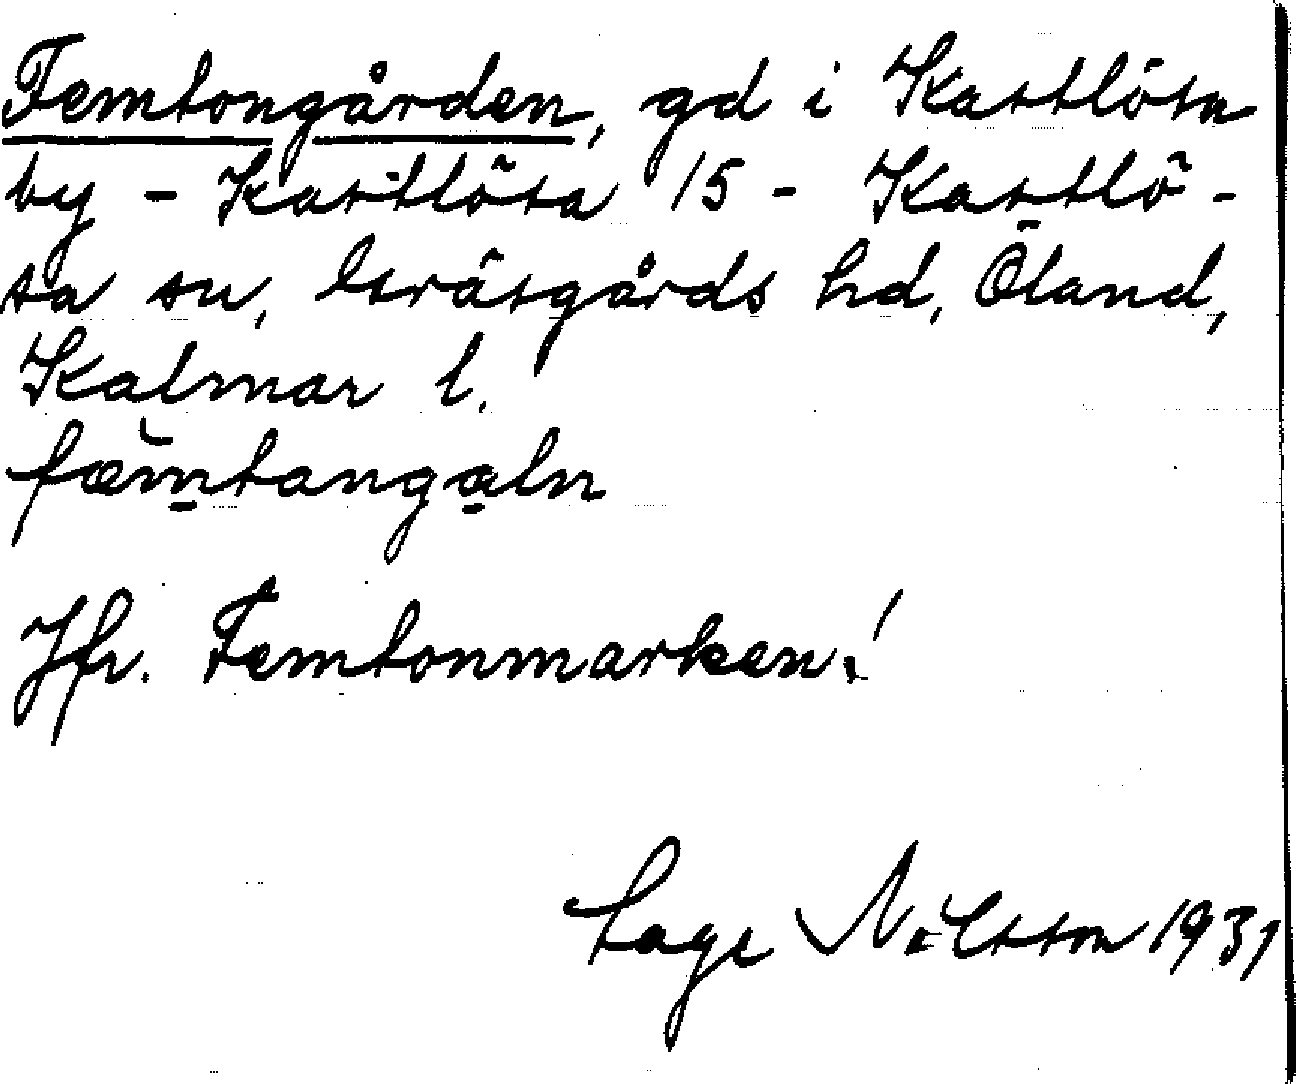 Femtongården, gd i Kastlösa
by - Kastlösa 15 - Kastlö-
sa sn, Gräsgårds hd, Öland,
Kalmar l.
fæmtangaln
Jfr. Femtonmarken!
Tage Nilsson 1931